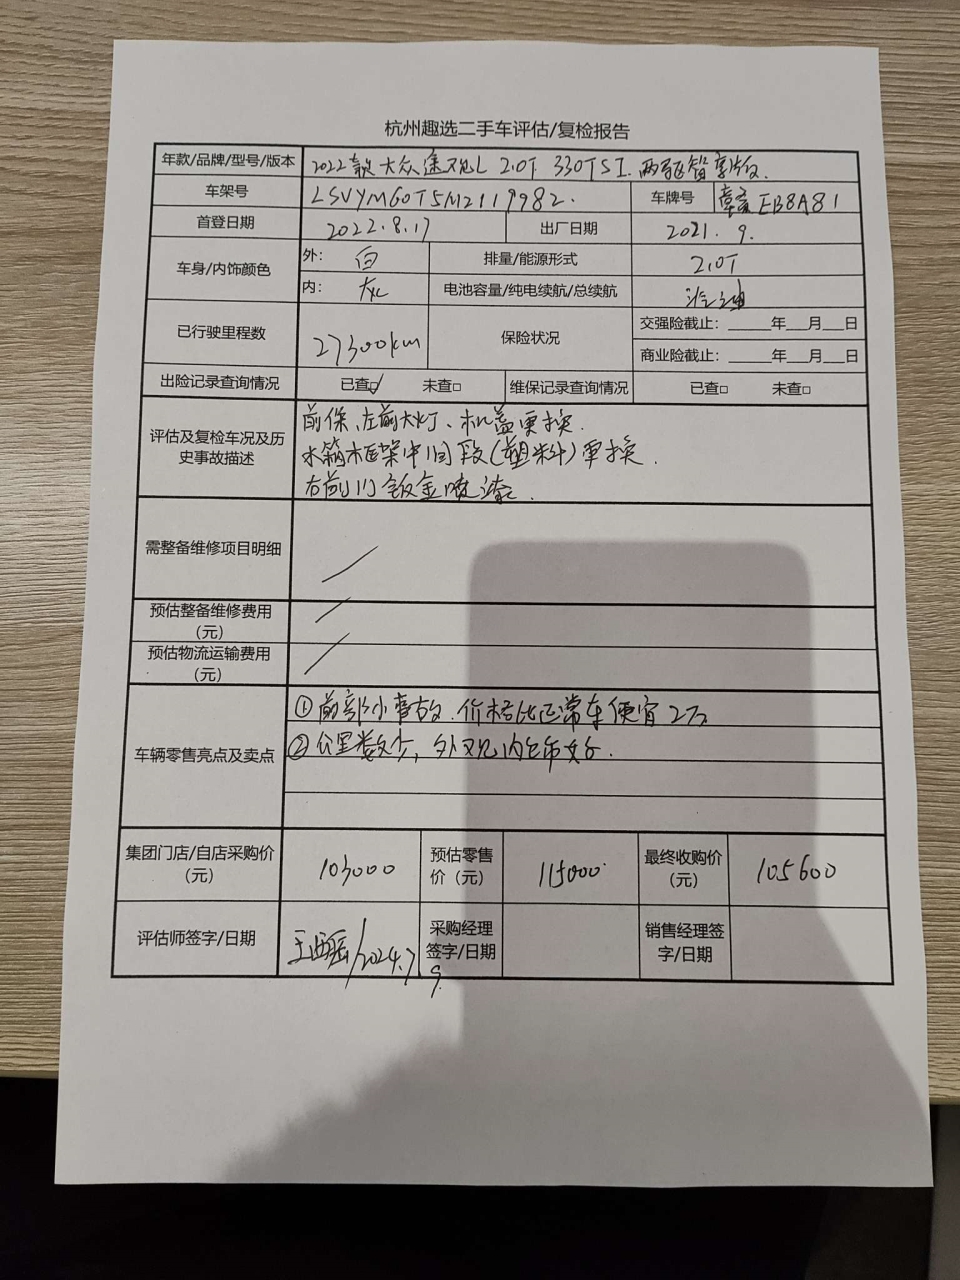 杭州趣选二手车评估/复检报告
年款/品牌/型号/版本 2022款大众途观L 2.0T 330TSI 两驱智享版
车架号 LSVYM60T5M2119982. 车牌号 EB8A81
首登日期 2022.8.17 出厂日期 2021.9.
车身/内饰颜色 外: 白 排量/能源形式 2.0T
内: 电池容量/纯电续航/总续航 汽油
已行驶里程数 27300km 保险状况 交强险截止: 年 月 日
商业险截止: 年 月 日
出险记录查询情况 已查□✓ 未查□ 维保记录查询情况 已查□ 未查□
评估及复检车况及历史事故描述
前保、左前大灯、机盖更换.
水箱框架中间段(塑料)更换.
右前门钣金喷漆.
需整备维修项目明细 /
预估整备维修费用(元) /
预估物流运输费用(元) /
车辆零售亮点及卖点
①前部小事故.价格比正常车便宜2万
②公里数少,外观内饰好.
集团门店/自店采购价(元) 103000 预估零售价(元) 115000 最终收购价(元) 105600
评估师签字/日期 /2024.7 9. 采购经理签字/日期 销售经理签字/日期